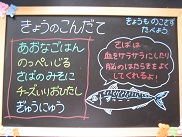 きょうのこんだて
あおなごはん
のっぺいじる
さばのみそに
チーズいりおひたし
ぎゅうにゅう
きょうものこさず
たべよう
さばは
血をサラサラにしたり
脳のはたらきをよく
してくれるよ！